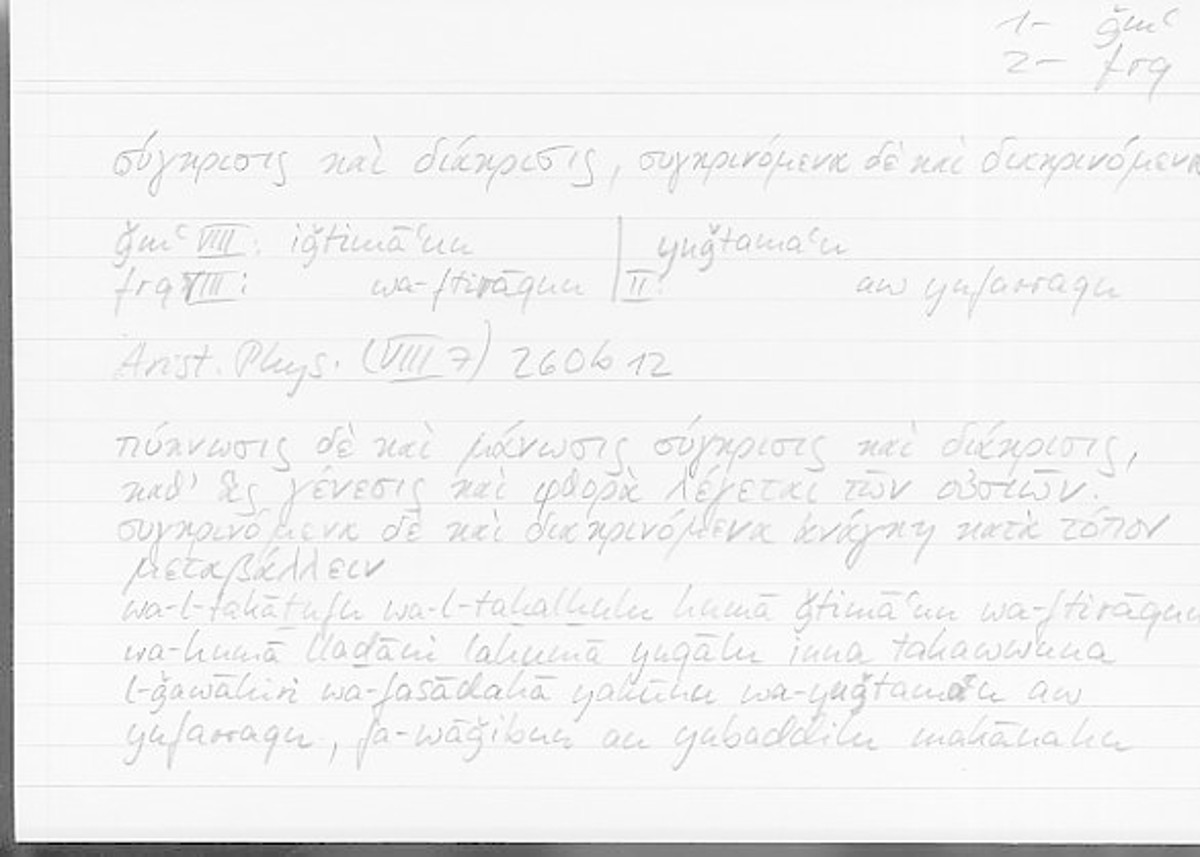 1– ǧmʿ
2– frq
σύγκρισις καὶ διάκρισις, συγκρινόμενα δὲ καὶ διακρινόμενα
ǧmʿ VIII: iǧtimāʿun | yuǧtamaʿu
frq VIII: wa-ftirāqun | II: aw yufarraqu
Arist. Phys. (VIII 7) 260b12
πύκνωσις δὲ καὶ μάνωσις σύγκρισις καὶ διάκρισις,
καθ' ἃς γένεσις καὶ φθορὰ λέγεται τῶν οὐσιῶν.
συγκρινόμενα δὲ καὶ διακρινόμενα ἀνάγκη κατὰ τόπον
μεταβάλλειν
wa-l-takāṯufu wa-l-taḫalḫulu humā ǧtimāʿun wa-ftirāqun
wa-humā llaḏāni lahumā yuqālu inna takawwuna
l-ǧawāhiri wa-fasādahā yakūnu wa-yuǧtamaʿu aw
yufarraqu, fa-wāǧibun an yubaddilu makānahu